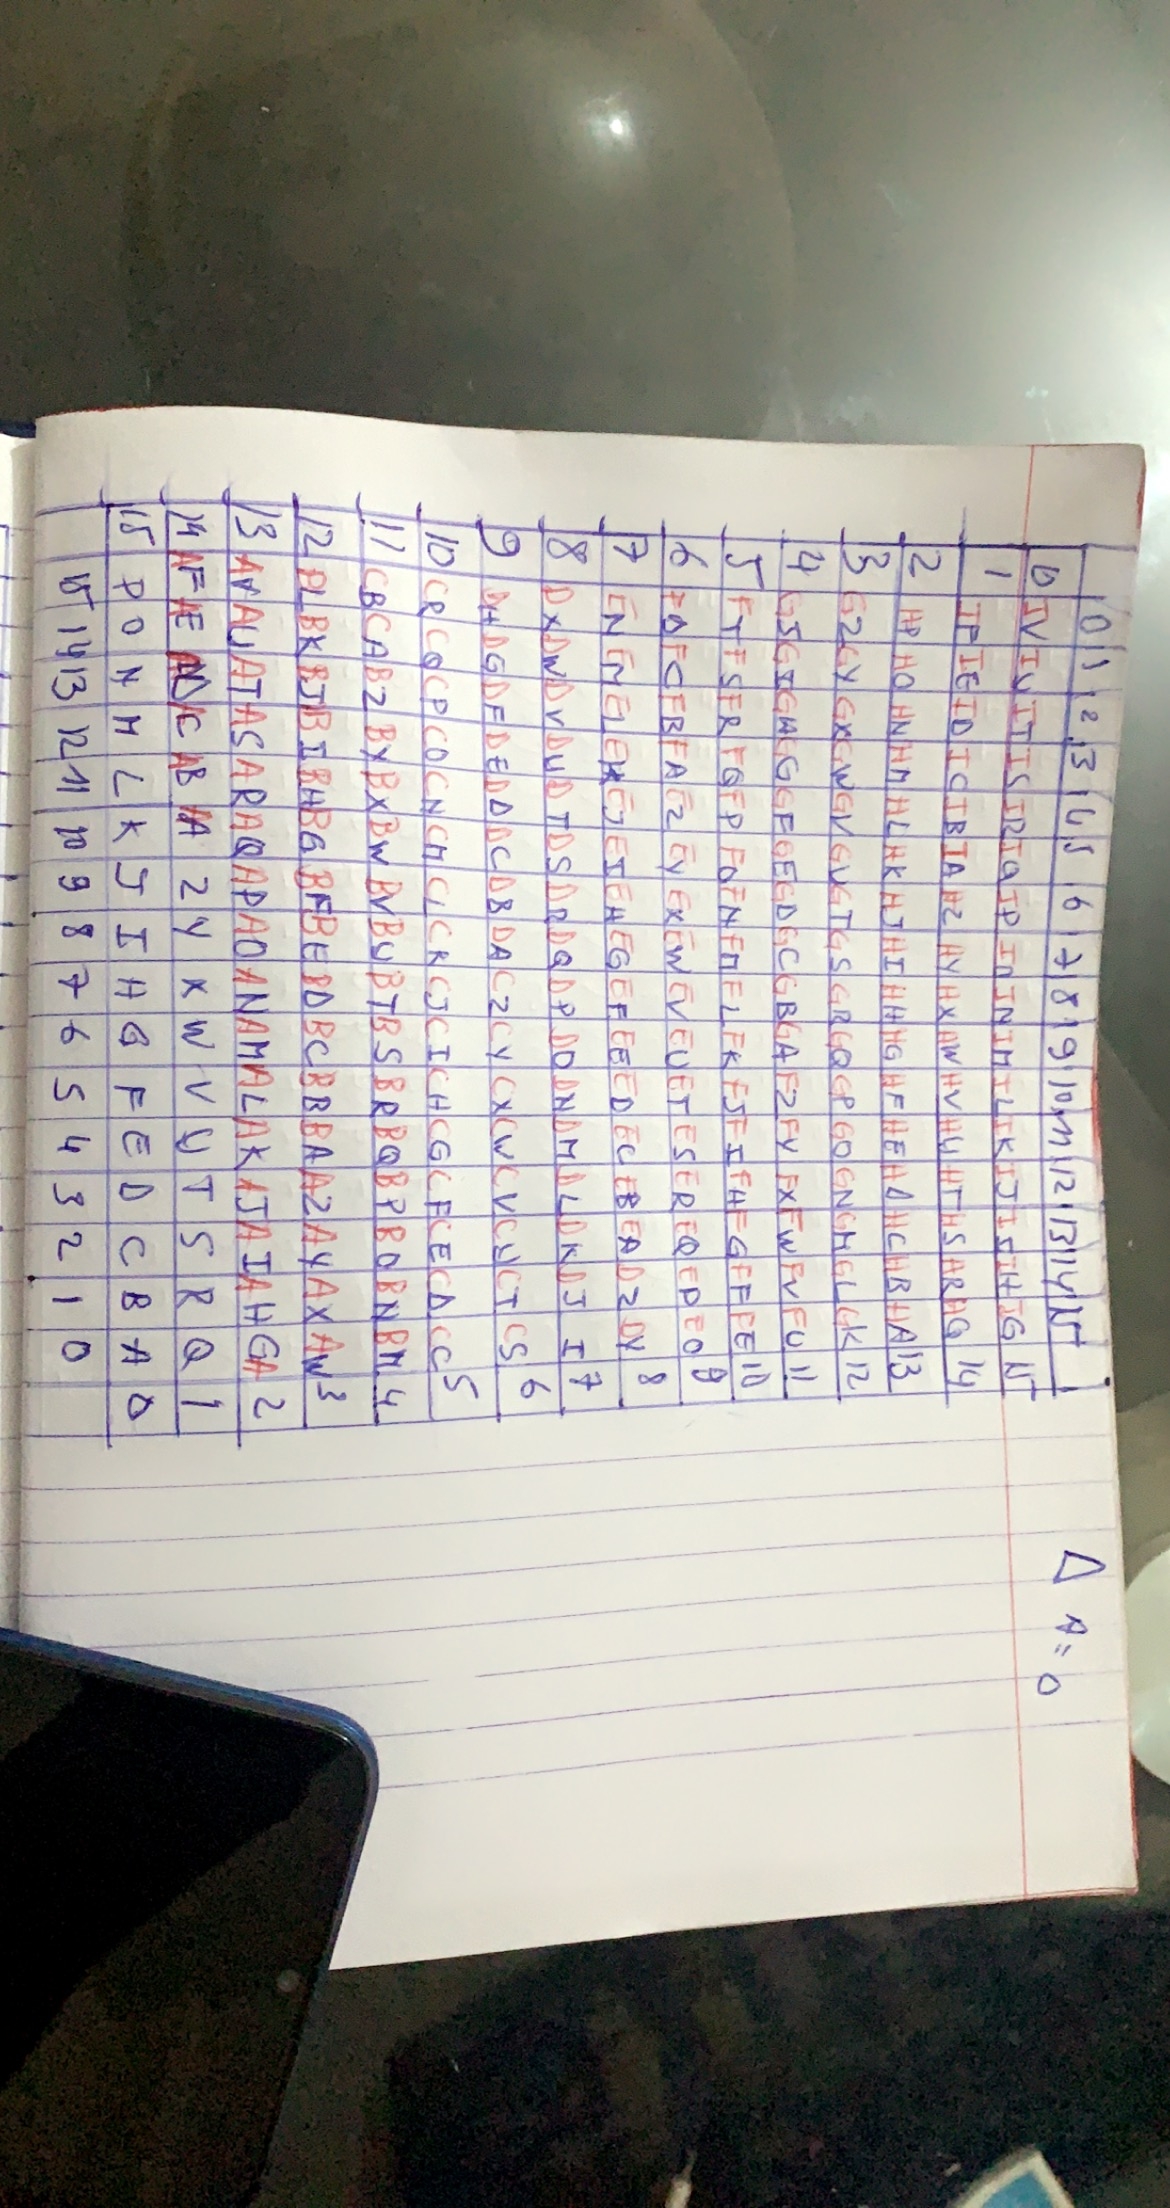 0 1 2 3 4 5 6 7 8 9 10 11 12 13 14 15
Δ A = 0
0 IV IU IT IS IR IQ IP IO IN IM IL IK IJ II IH IG 15
1 IF IE ID IC IB IA HZ HY HX HW HV HU HT HS HR HQ 14
2 HP HO HN HM HL HK HJ HI HH HG HF HE HD HC HB HA 13
3 GZ GY GX GW GV GU GT GS GR GQ GP GO GN GM GL GK 12
4 GJ GI GH GG GF GE GD GC GB GA FZ FY FX FW FV FU 11
5 FT FS FR FQ FP FO FN FM FL FK FJ FI FH FG FF FE 10
6 FD FC FB FA EZ EY EX EW EV EU ET ES ER EQ EP EO 9
7 EN EM EL EK EJ EI EH EG EF EE ED EC EB EA DZ DY 8
8 DX DW DV DU DT DS DR DQ DP DO DN DM DL DK DJ I 7
9 DH DG DF DE DD DC DB DA CZ CY CX CW CV CU CT CS 6
10 CR CQ CP CO CN CM CL CK CJ CI CH CG CF CE CD CC 5
11 CB CA BZ BY BX BW BV BU BT BS BR BQ BP BO BN BM 4
12 BL BK BJ BI BH BG BF BE BD BC BB BA AZ AY AX AW 3
13 AV AU AT AS AR AQ AP AO AN AM AL AK AJ AI AH GA 2
14 AF AE AD AC AB AA Z Y X W V U T S R Q 1
15 P O N M L K J I H G F E D C B A 0
15 14 13 12 11 10 9 8 7 6 5 4 3 2 1 0